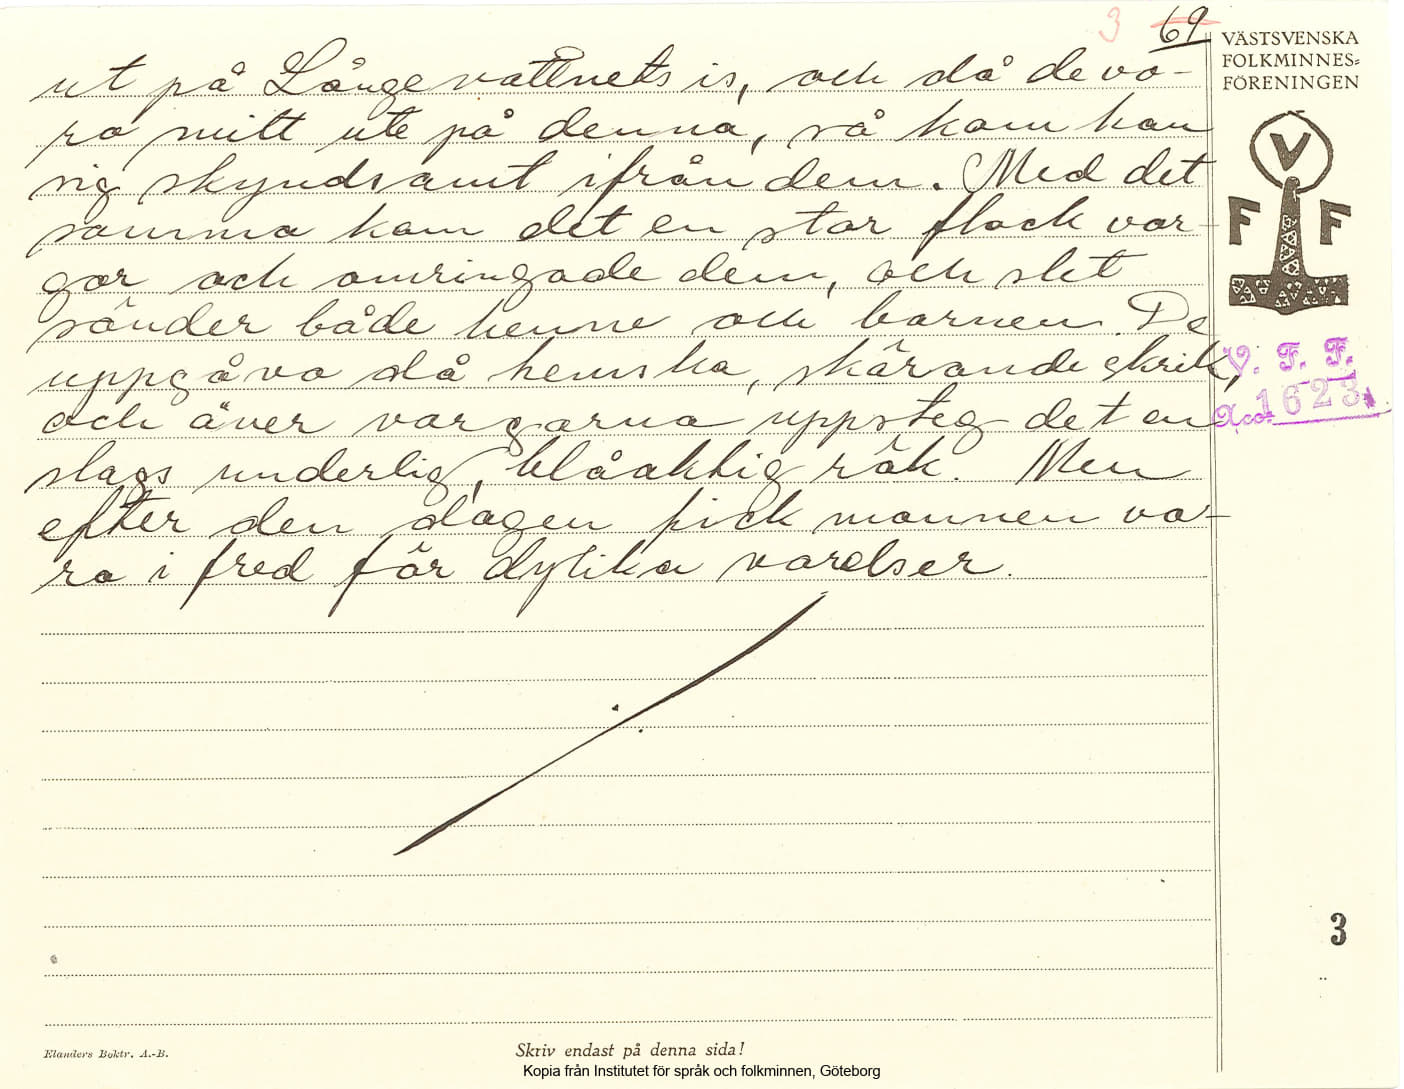 3 69
VÄSTSVENSKA
FOLKMINNES=
FÖRENINGEN
ut på Långevattnets is, och då de vo-
ro mitt ute på denna, så kom han
sig skyndsamt ifrån dem. Med det
samma kom det en stor flock var-
gar och omringade dem, och slet
sönder både henne och barnen. De
uppgåvo då hemska, skärande skrik,
och över vargarna uppsteg det en
slags underlig, blåaktig rök. Men
efter den dagen fick mannen va-
ra i fred för dylika varelser.
V
F F
V. F. F.
Acc. 1623
3
Elanders Boktr. A.-B.
Skriv endast på denna sida!
Kopia från Institutet för språk och folkminnen, Göteborg